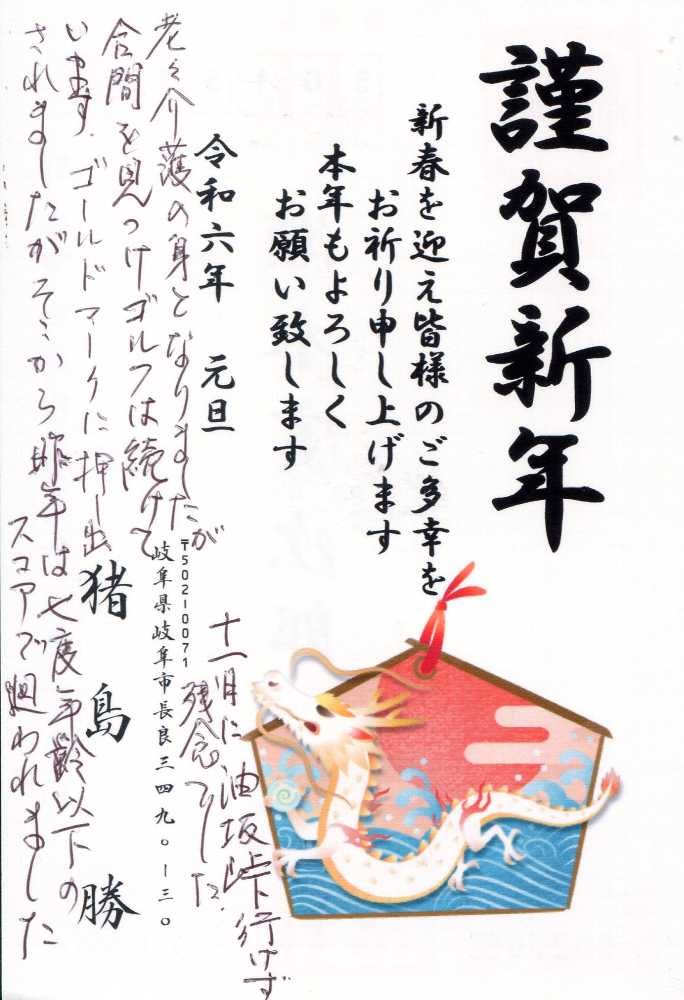 謹賀新年
新春を迎え皆様のご多幸を
お祈り申し上げます
本年もよろしく
お願い致します
令和六年 元旦
〒502-0071
岐阜県岐阜市長良三四九〇ー三〇
猪島 勝
老々介護の身となりましたが
合間を見つけゴルフは続けて
います。ゴールドマークに押し出
されましたがそこから昨年は七度年齢以下の
スコアで廻われました
十一月に油坂峠行けず
残念でした